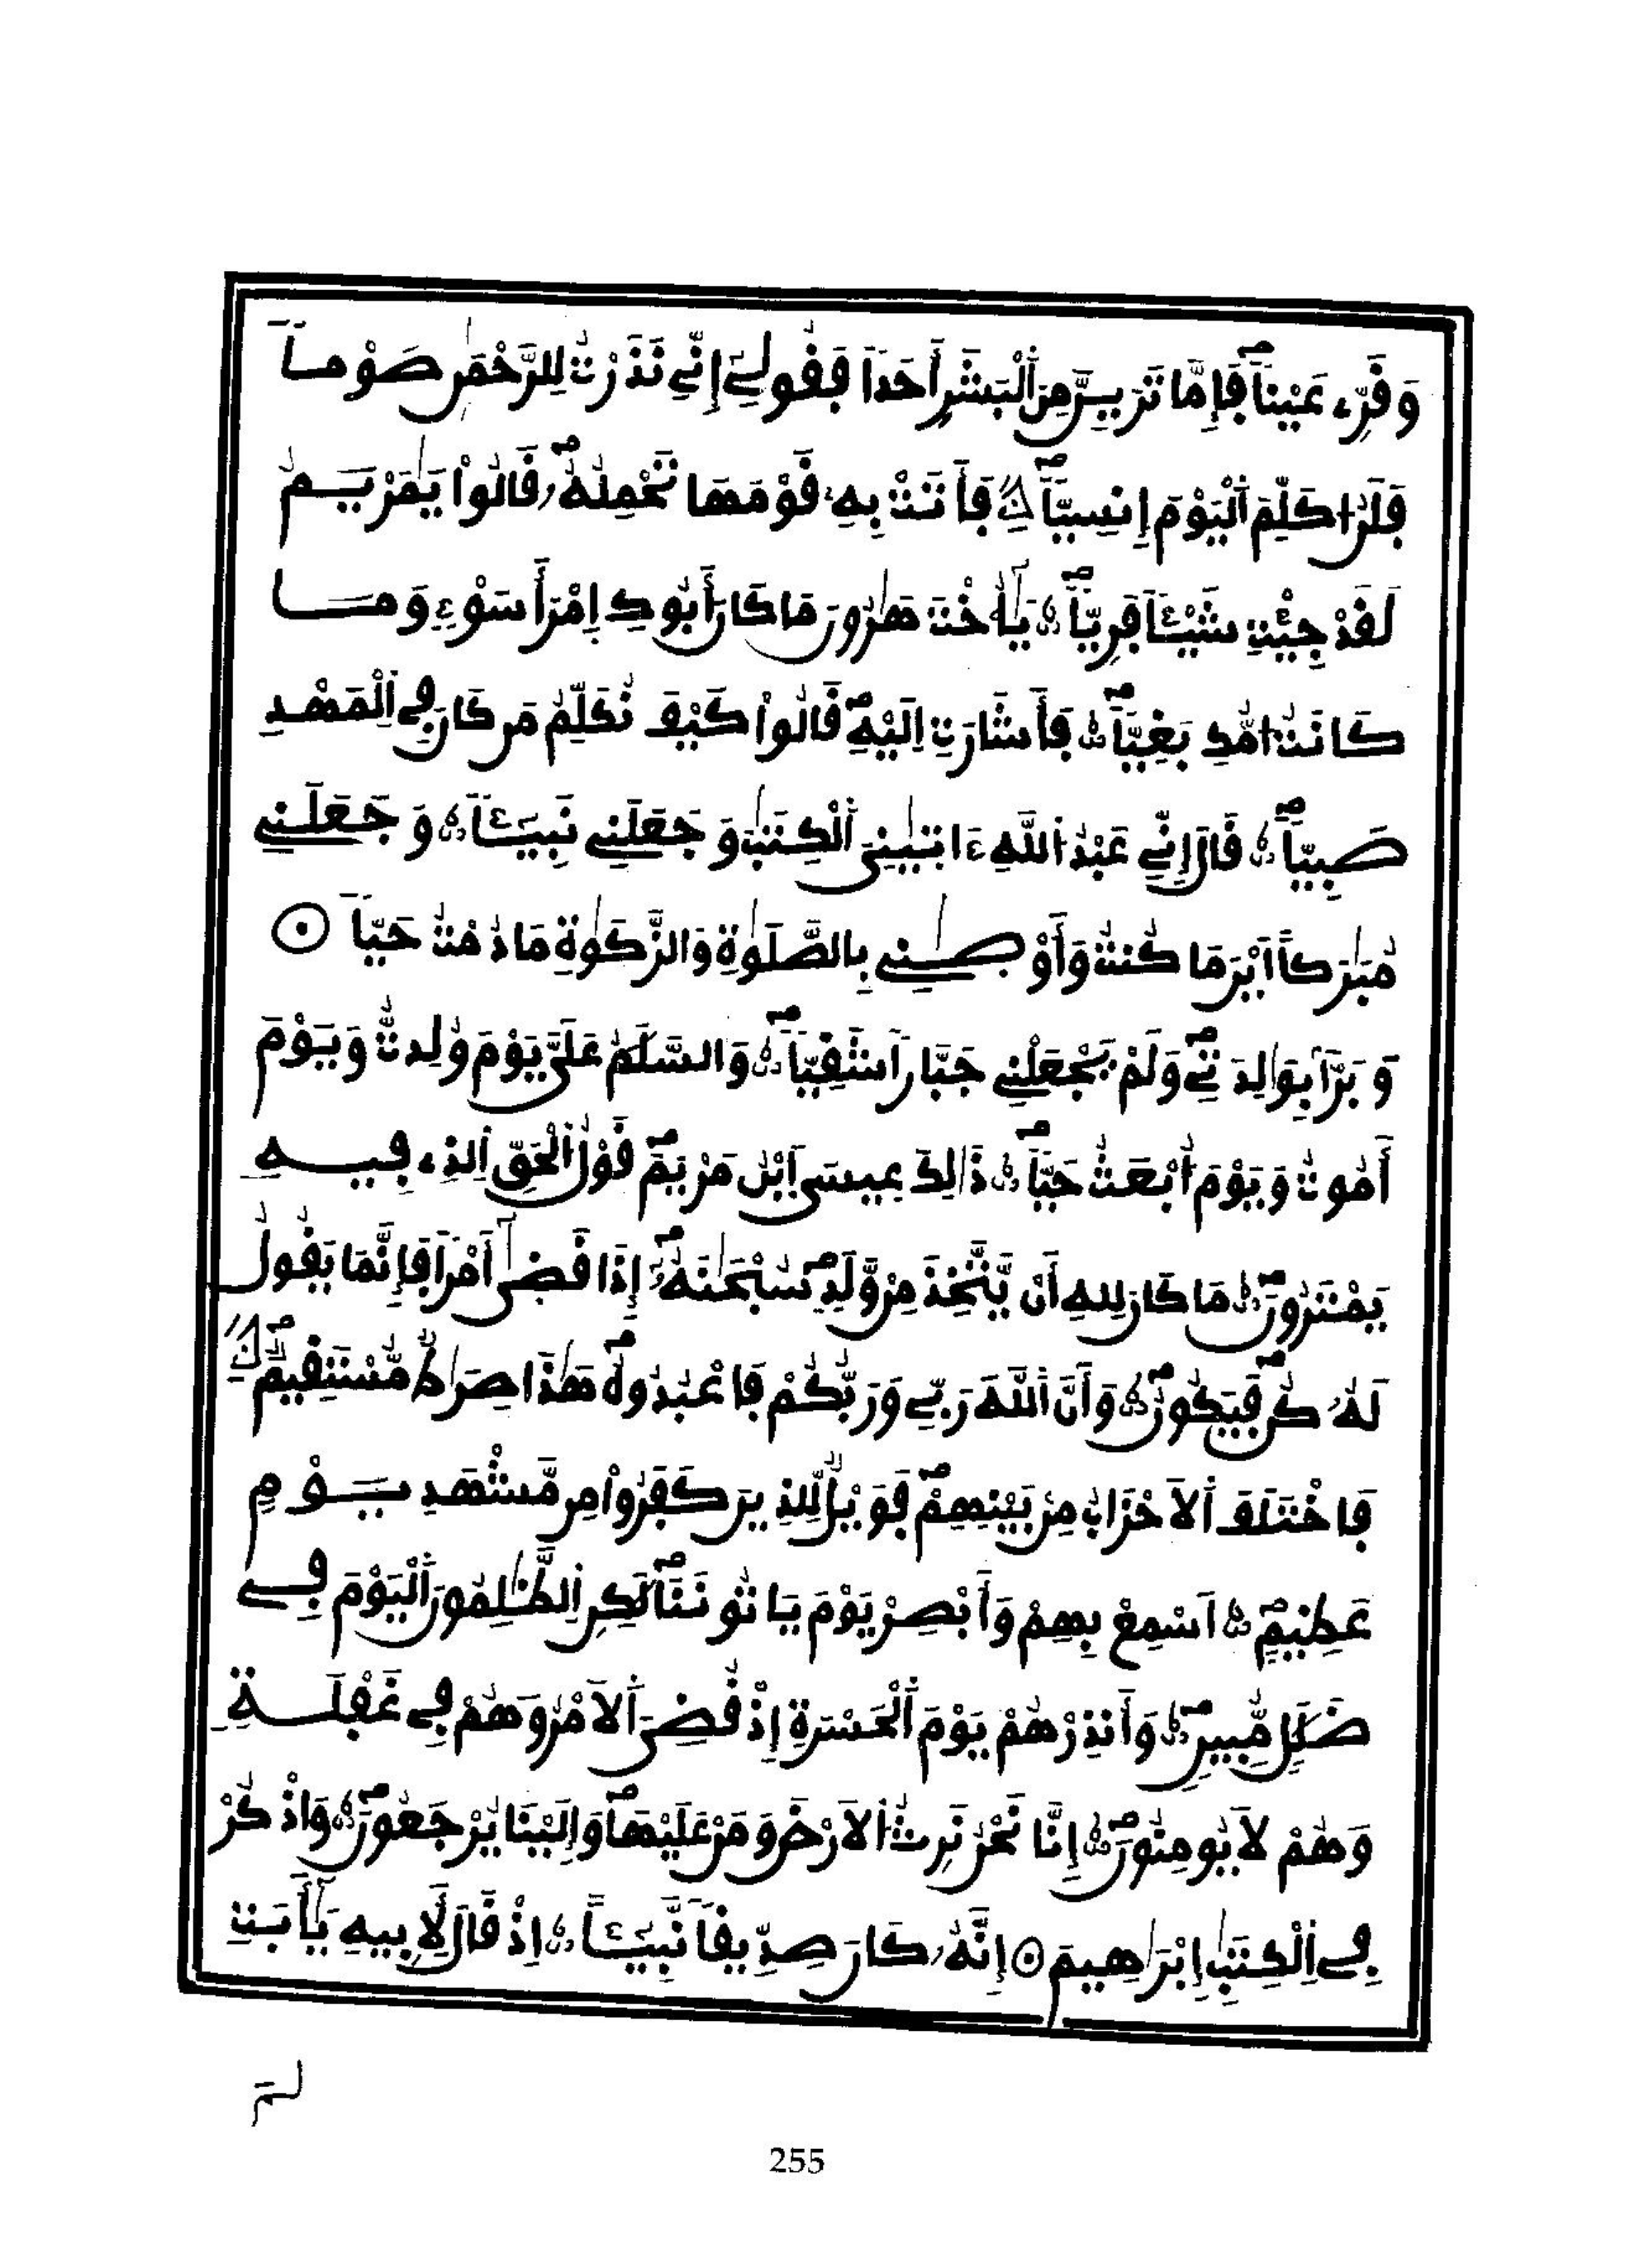 وَقَرِّے عَيْناٗ فَإِمَّا تَرَيِنَّ مِنَ اَ۬لْبَشَرِ أَحَداٗ فَقُولِےٓ إِنِّے نَذَرْتُ لِلرَّحْمَٰنِ صَوْماٗ
فَلَنُ ا۟كَلِّمَ اَ۬لْيَوْمَ إِنسِيّاٗ فَأَتَتْ بِهِۦ قَوْمَهَا تَحْمِلُهُۥ قَالُواْ يَٰمَرْيَمُ
لَقَدْ جِئْتِ شَيْـٔاٗ فَرِيّاٗ يَٰٓأُخْتَ هَٰرُونَ مَا كَانَ أَبُوكِ اِ۪مْرَأَ سَوْءٖ وَمَا
كَانَتُ ا۟مُّكِ بَغِيّاٗ فَأَشَارَتِ اِلَيْهِ قَالُواْ كَيْفَ نُكَلِّمُ مَن كَانَ فِے اِ۬لْمَهْدِ
صَبِيّاٗ قَالَ إِنِّے عَبْدُ اُ۬للَّهِ ءَاتَيٰنِيَ اَ۬لْكِتَٰبَ وَجَعَلَنِے نَبِيٓـٔاٗ وَجَعَلَنِے
مُبَٰرَكاً اَيْنَ مَا كُنتُ وَأَوْصَٰنِے بِالصَّلَوٰةِ وَالزَّكَوٰةِ مَا دُمْتُ حَيّاٗ
وَبَرّاَۢ بِوَٰلِدَتِے وَلَمْ يَجْعَلْنِے جَبَّاراٗ شَقِيّاٗ وَالسَّلَٰمُ عَلَيَّ يَوْمَ وُلِدتُّ وَيَوْمَ
أَمُوتُ وَيَوْمَ أُبْعَثُ حَيّاٗ ذَٰلِكَ عِيسَى اَ۪بْنُ مَرْيَمَ قَوْلُ اُ۬لْحَقِّ اِ۬لذِے فِيهِ
يَمْتَرُونَ مَا كَانَ لِلهِ أَنْ يَّتَّخِذَ مِنْ وَّلَدٖ سُبْحَٰنَهُۥٓ إِذَا قَضَىٰٓ أَمْراٗ فَإِنَّمَا يَقُولُ
لَهُۥ كُن فَيَكُونُ وَأَنَّ اَ۬للَّهَ رَبِّے وَرَبُّكُمْ فَاعْبُدُوهُ هَٰذَا صِرَٰطٞ مُّسْتَقِيمٞ
فَاخْتَلَفَ اَ۬لَاحْزَابُ مِنۢ بَيْنِهِمْ فَوَيْلٞ لِّلذِينَ كَفَرُواْ مِن مَّشْهَدِ يَوْمٍ
عَظِيمٍ اَسْمِعْ بِهِمْ وَأَبْصِرْ يَوْمَ يَاتُونَنَا لَٰكِنِ اِ۬لظَّٰلِمُونَ اَ۬لْيَوْمَ فِے
ضَلَٰلٖ مُّبِينٖ وَأَنذِرْهُمْ يَوْمَ اَ۬لْحَسْرَةِ إِذْ قُضِيَ اَ۬لَامْرُ وَهُمْ فِے غَفْلَةٖ
وَهُمْ لَا يُومِنُونَ إِنَّا نَحْنُ نَرِثُ اُ۬لَارْضَ وَمَنْ عَلَيْهَا وَإِلَيْنَا يُرْجَعُونَ وَاذْكُرْ
فِے اِ۬لْكِتَٰبِ إِبْرَٰهِيمَ إِنَّهُۥ كَانَ صِدِّيقاٗ نَّبِيٓـٔاً اِذْ قَالَ لِأَبِيهِ يَٰٓأَبَتِ
لم
255